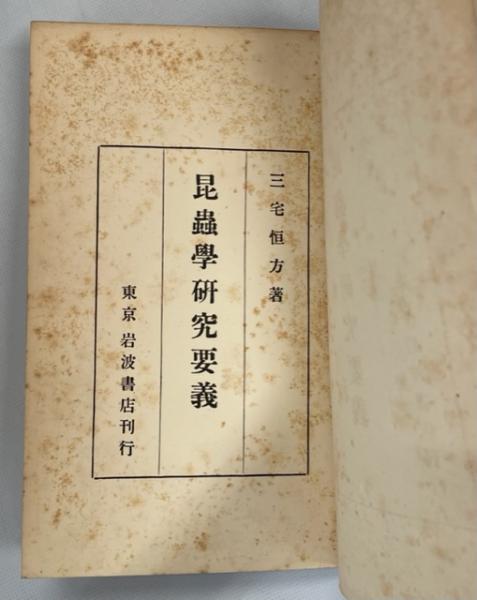 三宅恒方著
昆蟲學研究要義
東京 岩波書店刊行